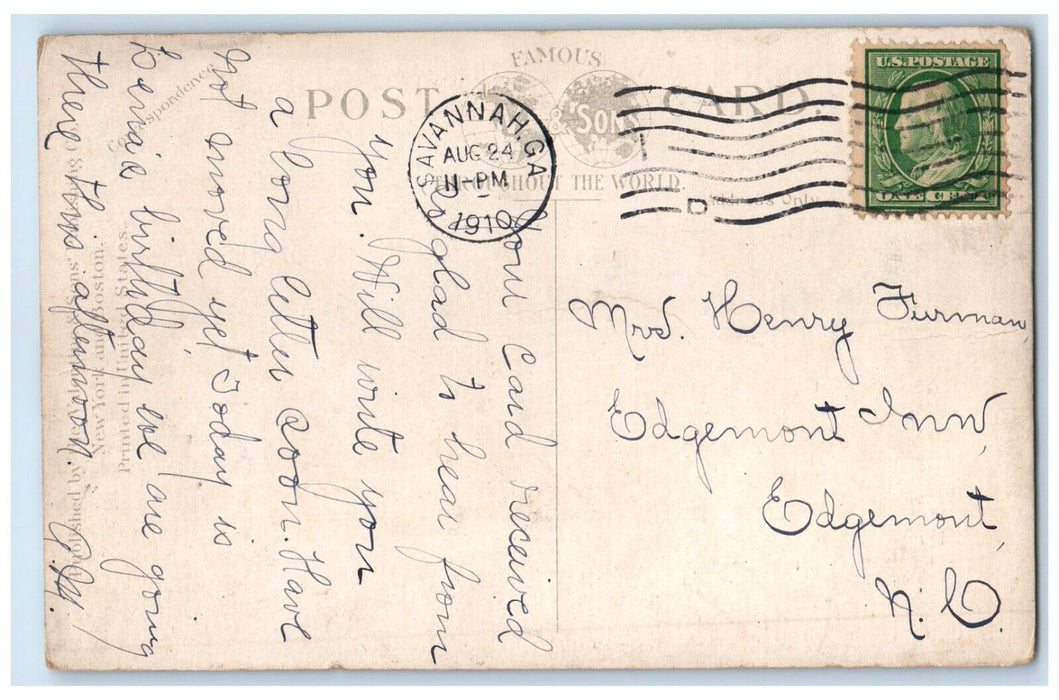 FAMOUS
POST CARD
& SONS
THROUGHOUT THE WORLD.
SAVANNAH, GA
AUG 24
-PM
1910
D
U.S. POSTAGE
ONE CENT
Correspondence
Your card received
so glad to hear from
you. Will write you
a long letter soon. Have
not moved yet Today is
birthday we are going
there this afternoon.
Mrs. Henry Furman,
Edgemont Inn,
Edgemont,
N. C.
Published by
New York and Boston.
Printed in United States.